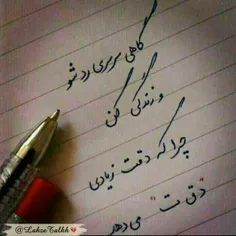 گاهی سرسری رد شو
و زندگی کن
چرا که دقت زیادی
"دق ت" می دهد
@LahzeTalkh